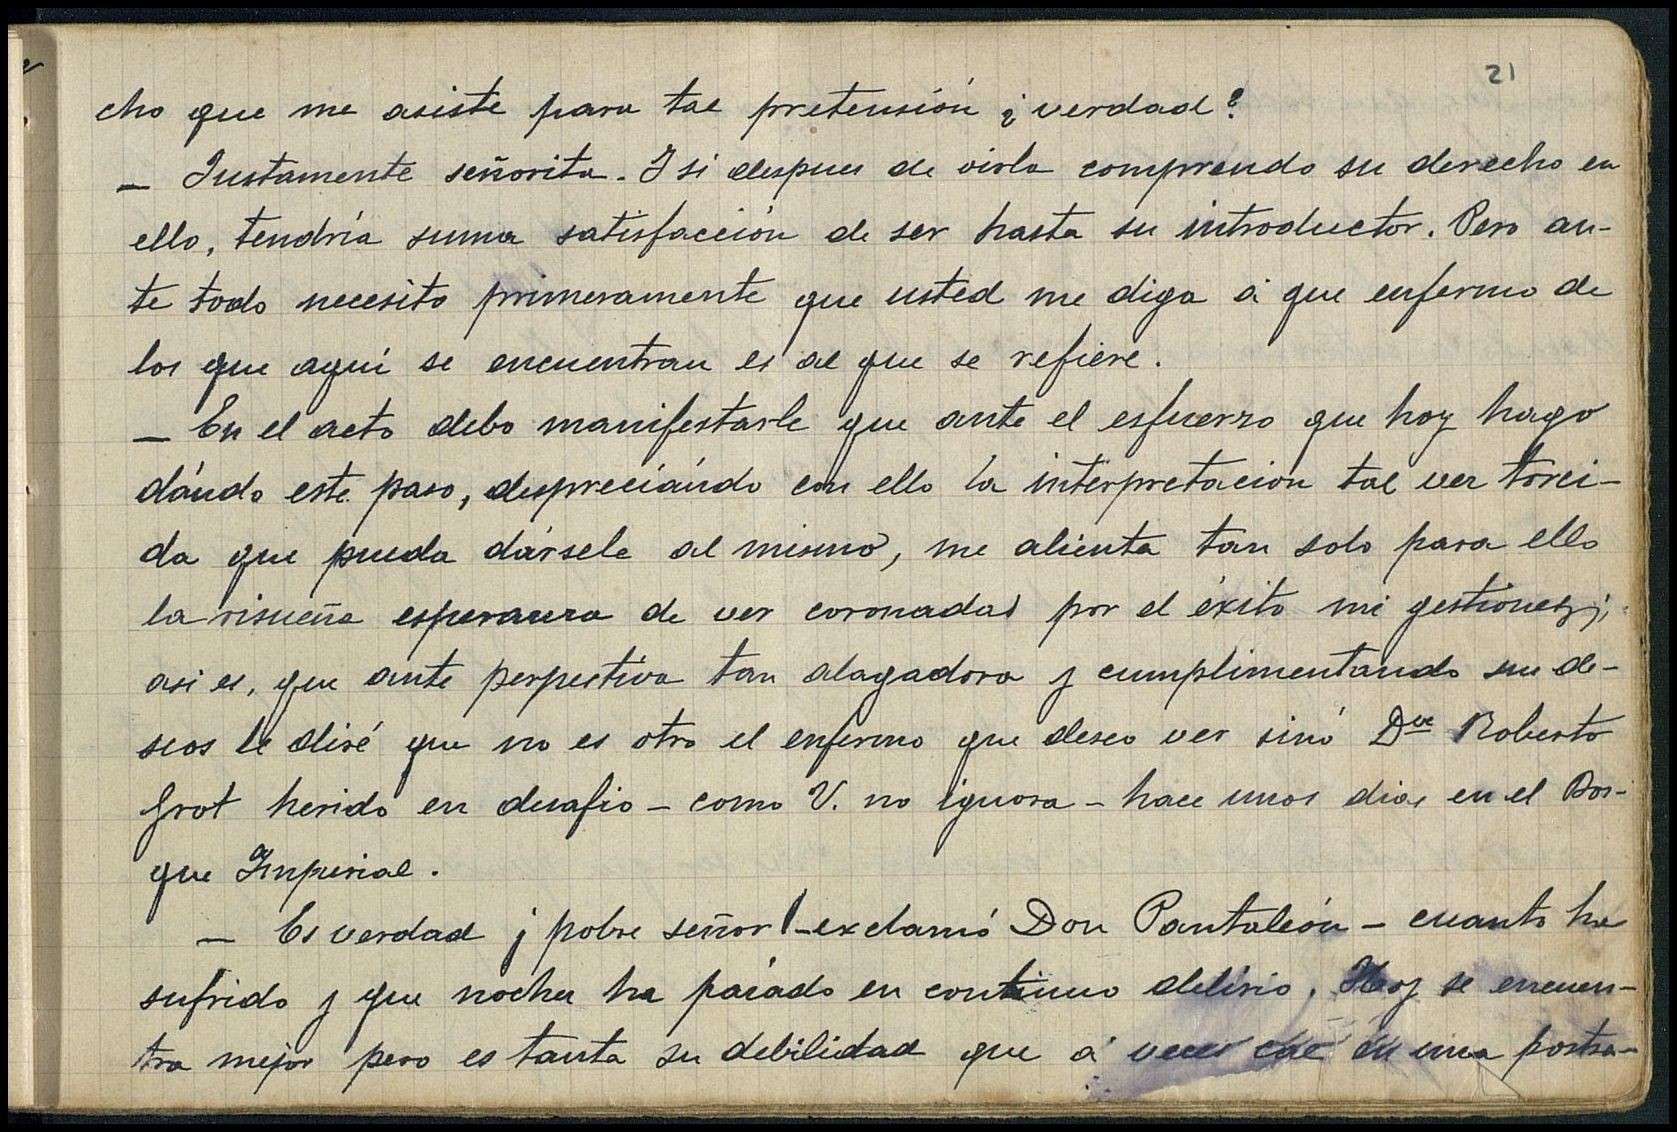 21
cho que me asiste para tal pretensión ¿verdad?
— Justamente señorita. I si despues de oirla comprendo su derecho en
ello, tendría suma satisfacción de ser hasta su introductor. Pero an-
te todo necesito primeramente que usted me diga á que enfermo de
los que aquí se encuentran es al que se refiere.
— En el acto debo manifestarle que ante el esfuerzo que hoy hago
dándo este paso, despreciándo con ello la interpretacion tal vez torci-
da que pueda dársele al mismo, me alienta tan solo para ello
la risueña esperanza de ver coronadas por el éxito mi gestiones;
asi es, que ante perpectiva tan alagadora y cumplimentando sus de-
seos le diré que no es otro el enfermo que deseo ver sinó Dn Roberto
Grot herido en desafio — como V. no ignora — hace unos dias en el Bos-
que Imperial.
— Es verdad ¡pobre señor! — exclamó Don Pantaleón — cuanto ha
sufrido y que noches ha pasado en continuo delirio. Hoy se encuen-
tra mejor pero es tanta su debilidad que á veces cae en una postra-